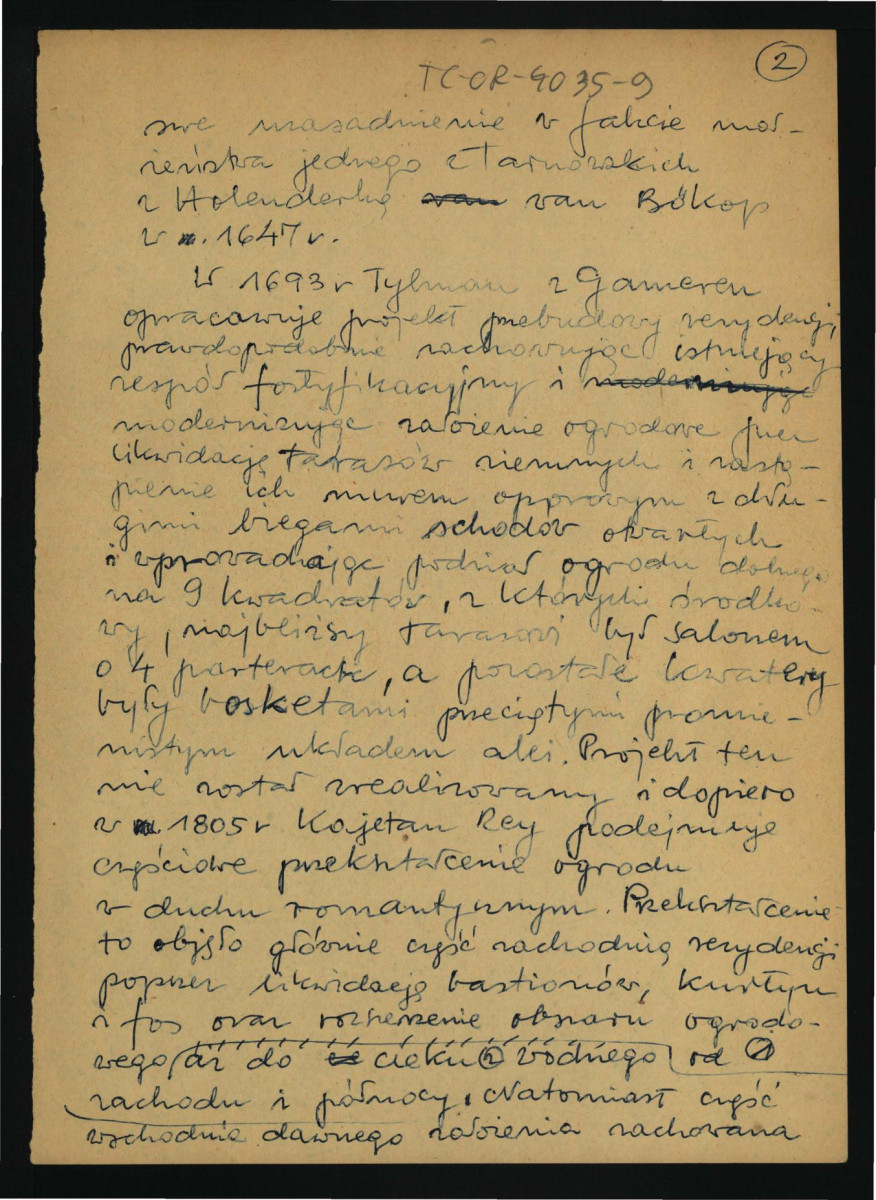 2
TC-OR-4035-9
swe uzasadnienie w fakcie mał-
żeństwa jednego z Tarnowskich
z Holenderką van van Bükop
w r. 1647 r.
W 1693 r Tylman z Gameren
opracowuje projekt przebudowy rezydencji,
prawdopodobnie zachowując istniejący
zespół fortyfikacyjny i modernizując
modernizując założenie ogrodowe przez
likwidację tarasów ziemnych i zastą-
pienie ich murem oporowym z dłu-
gimi biegami schodów otwartych
i wprowadzając podział ogrodu dolnego
na 9 kwadratów, z których środko-
wy, najbliższy tarasowi był salonem
o 4 parterach, a pozostałe kwatery
były bosketami przeciętymi promie-
nistym układem alei. Projekt ten
nie został zrealizowany i dopiero
w 1805 r Kajetan Rey podejmuje
częściowe przekształcenie ogrodu
w duchu romantycznym. Przekształcenie
to objęło głównie część zachodnią rezydencji
poprzez likwidację bastionów, kurtyn
i fos oraz rozszerzenie obszaru ogrodo-
wego aż do cieku wodnego od
zachodu i północy. Natomiast część
wschodnia dawnego założenia zachowana